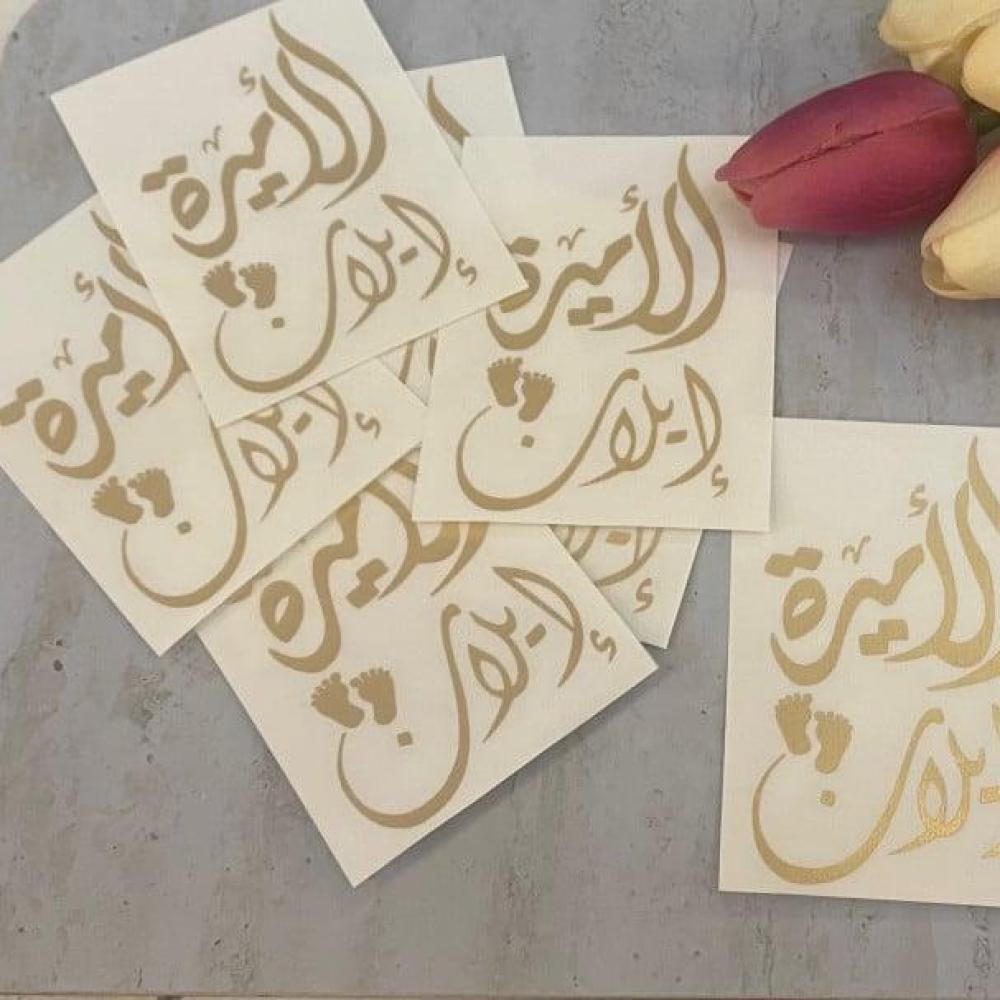 الأميرة
إيلان
الأميرة
إيلان
الأميرة
إيلان
الأميرة
إيلان
الأميرة
إيلان